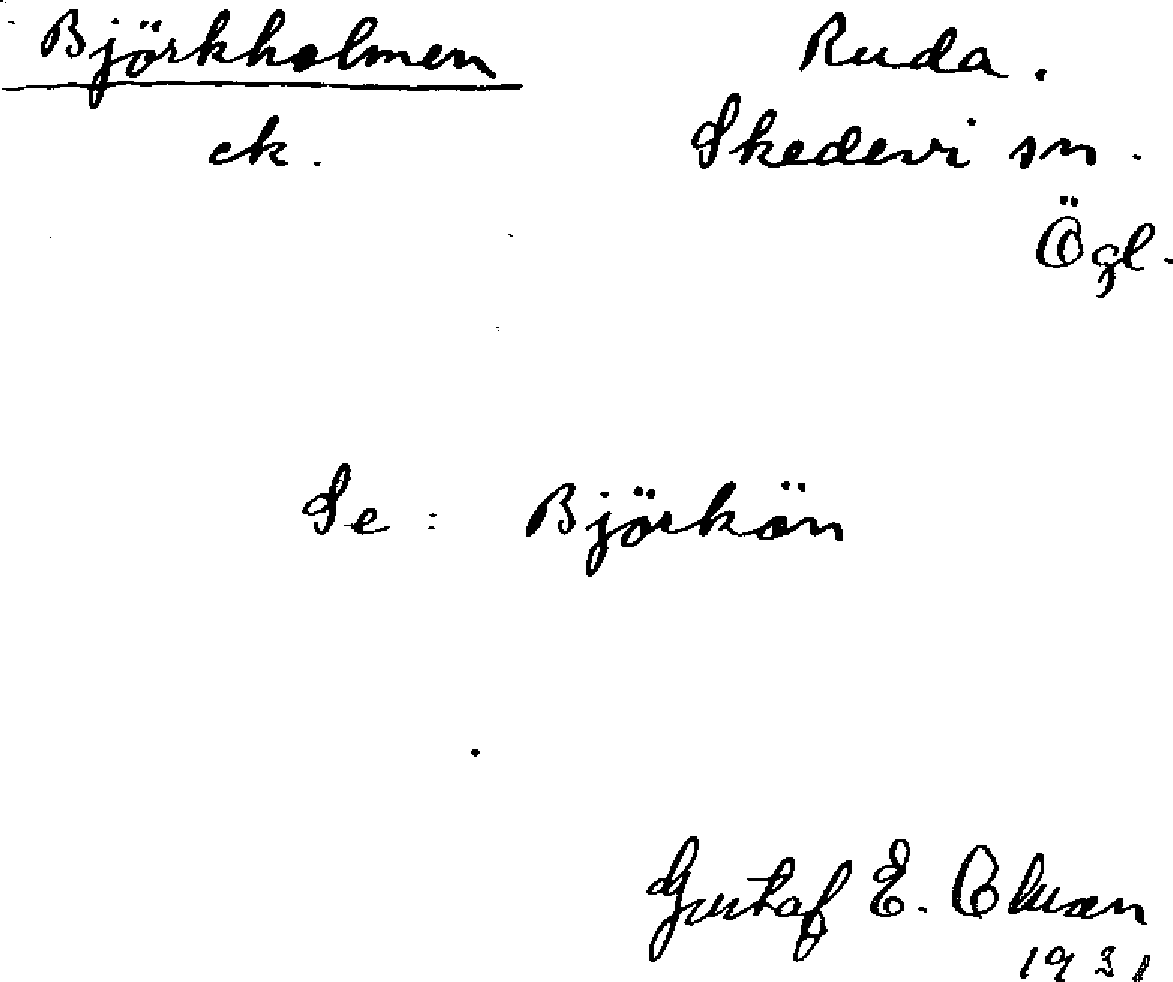 Björkholmen
ck.
Ruda.
Skedevi sn.
Ögl.
Se: Björkön
Gustaf E.
1931